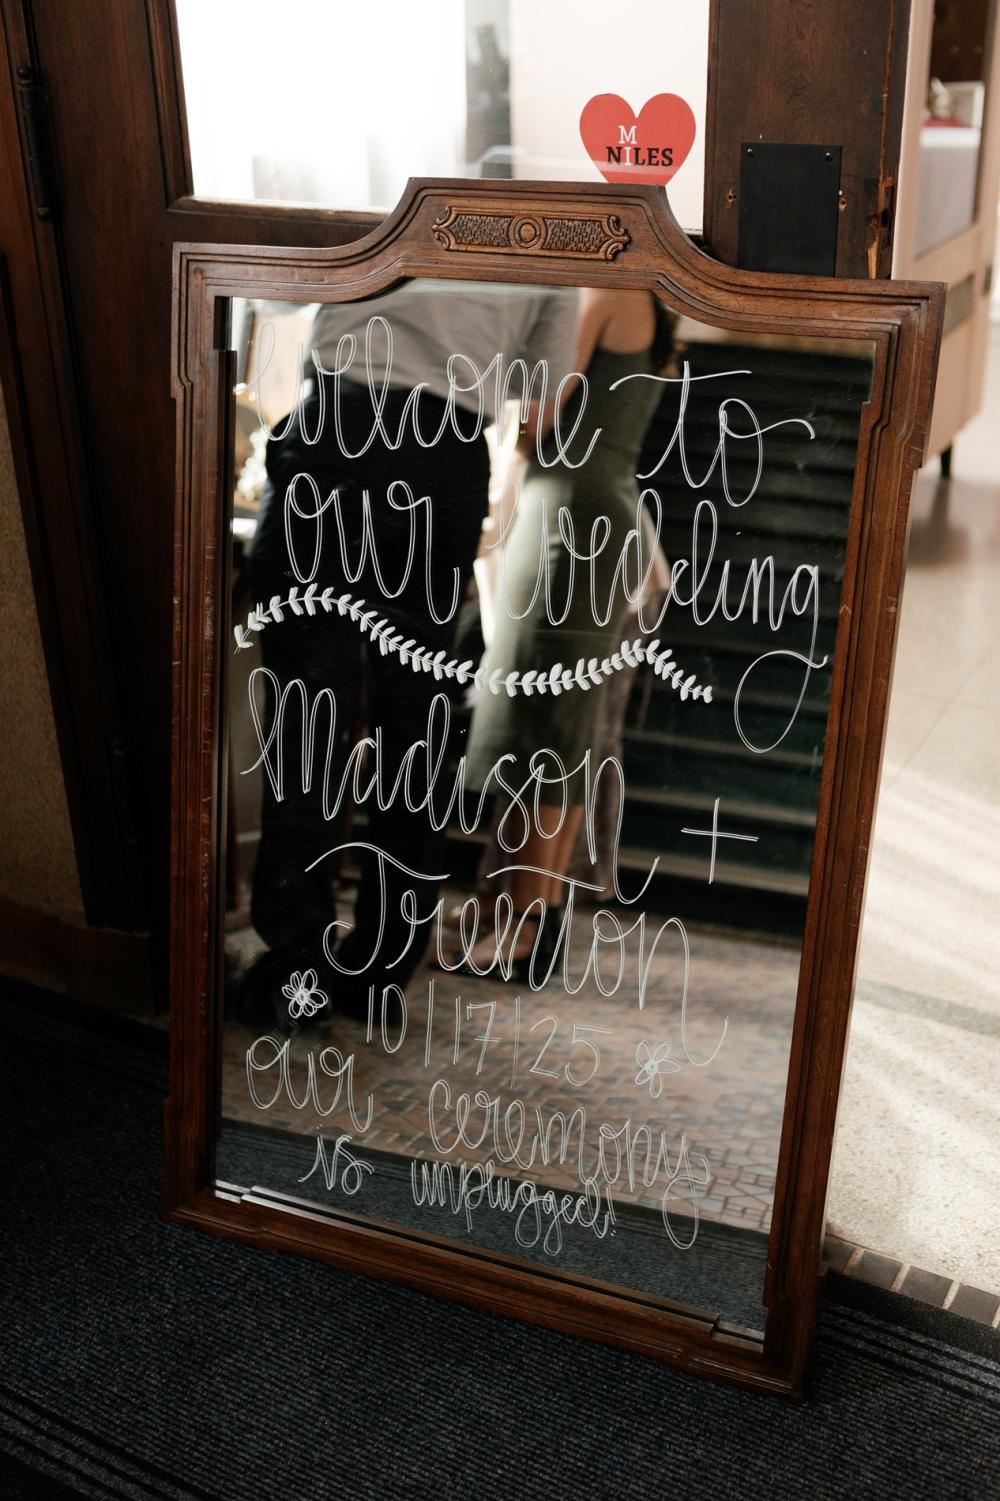 M
NILES
Welcome to
our wedding
Madison +
Trenton
10/17/25
our ceremony
is unplugged!